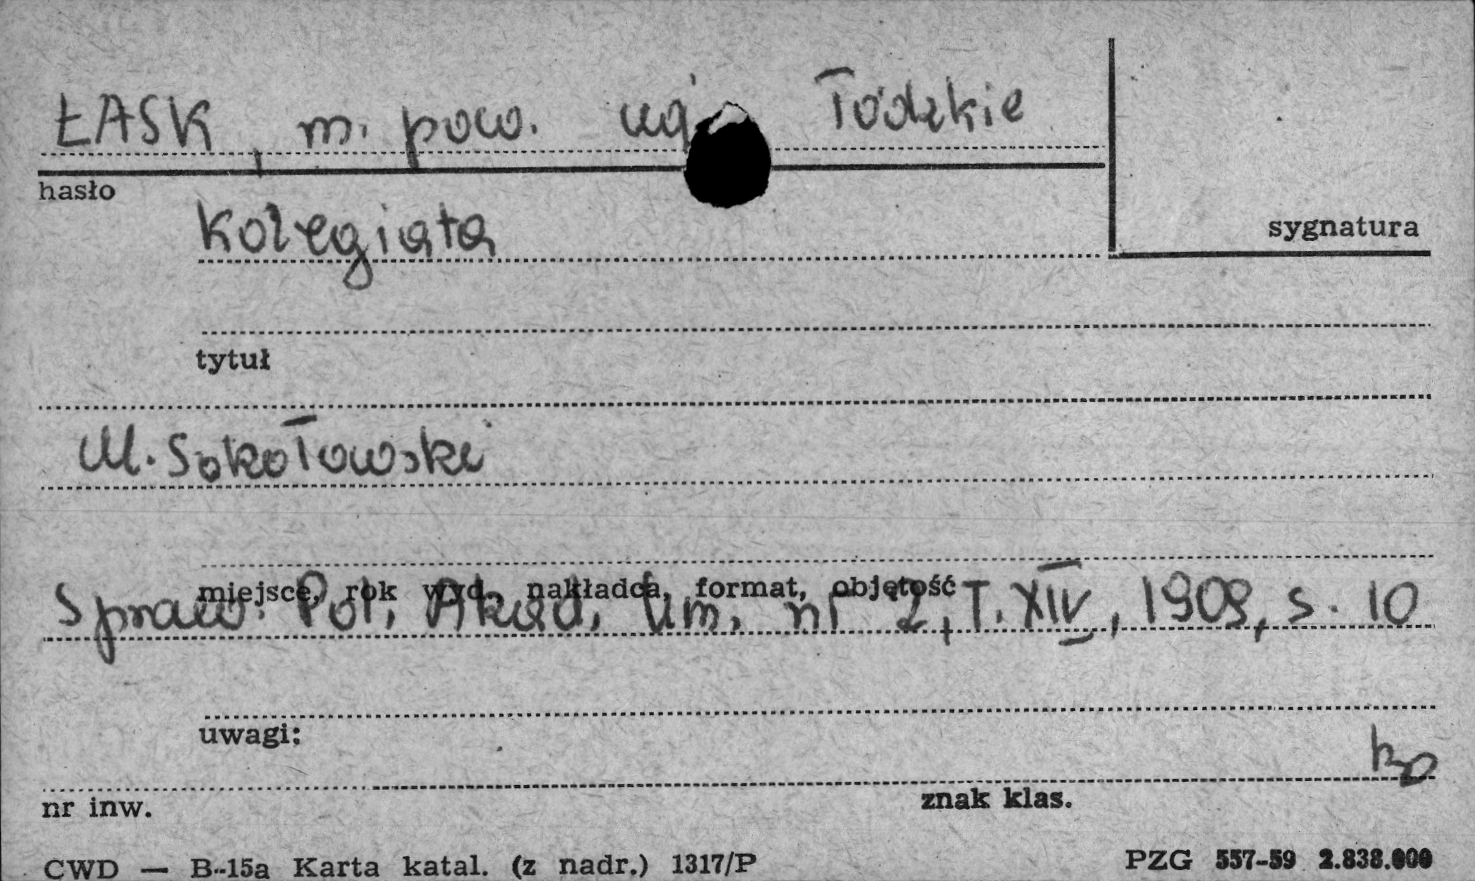 ŁASK, m. pow. Łódzkie
hasło
Kolegiata
sygnatura
tytuł
M. Sokołowski
miejsce, rok wyd., nakładca, format, objętość
Spraw. Pol. Akad. Um. nr 2, T. XIV, 1909, s. 10
uwagi:
nr inw.
znak klas.
CWD — B-15a Karta katal. (z nadr.) 1317/P
PZG 557-59 2.838.000